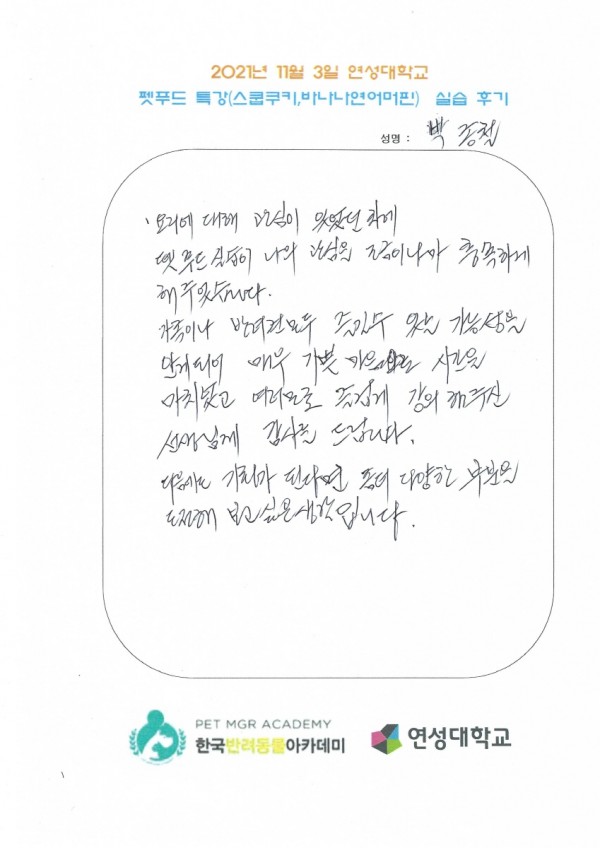 2021년 11월 3일 연성대학교
펫푸드 특강(스쿱쿠키,바나나연어머핀) 실습 후기
성명 : 박 종철
요리에 대해 관심이 있었던 차에
펫푸드 실습이 나의 관심을 조금이나마 충족하게
해 주었습니다.
가족이나 반려견 모두 즐길수 있는 가능성을
알게되어 매우 기쁜 시간을
마치었고 여러모로 즐겁게 강의 해주신
선생님께 감사를 드립니다.
다음에도 기회가 된다면 좀더 다양한 부분을
도전해 보고 싶은 생각입니다.
PET MGR ACADEMY
한국반려동물아카데미
연성대학교